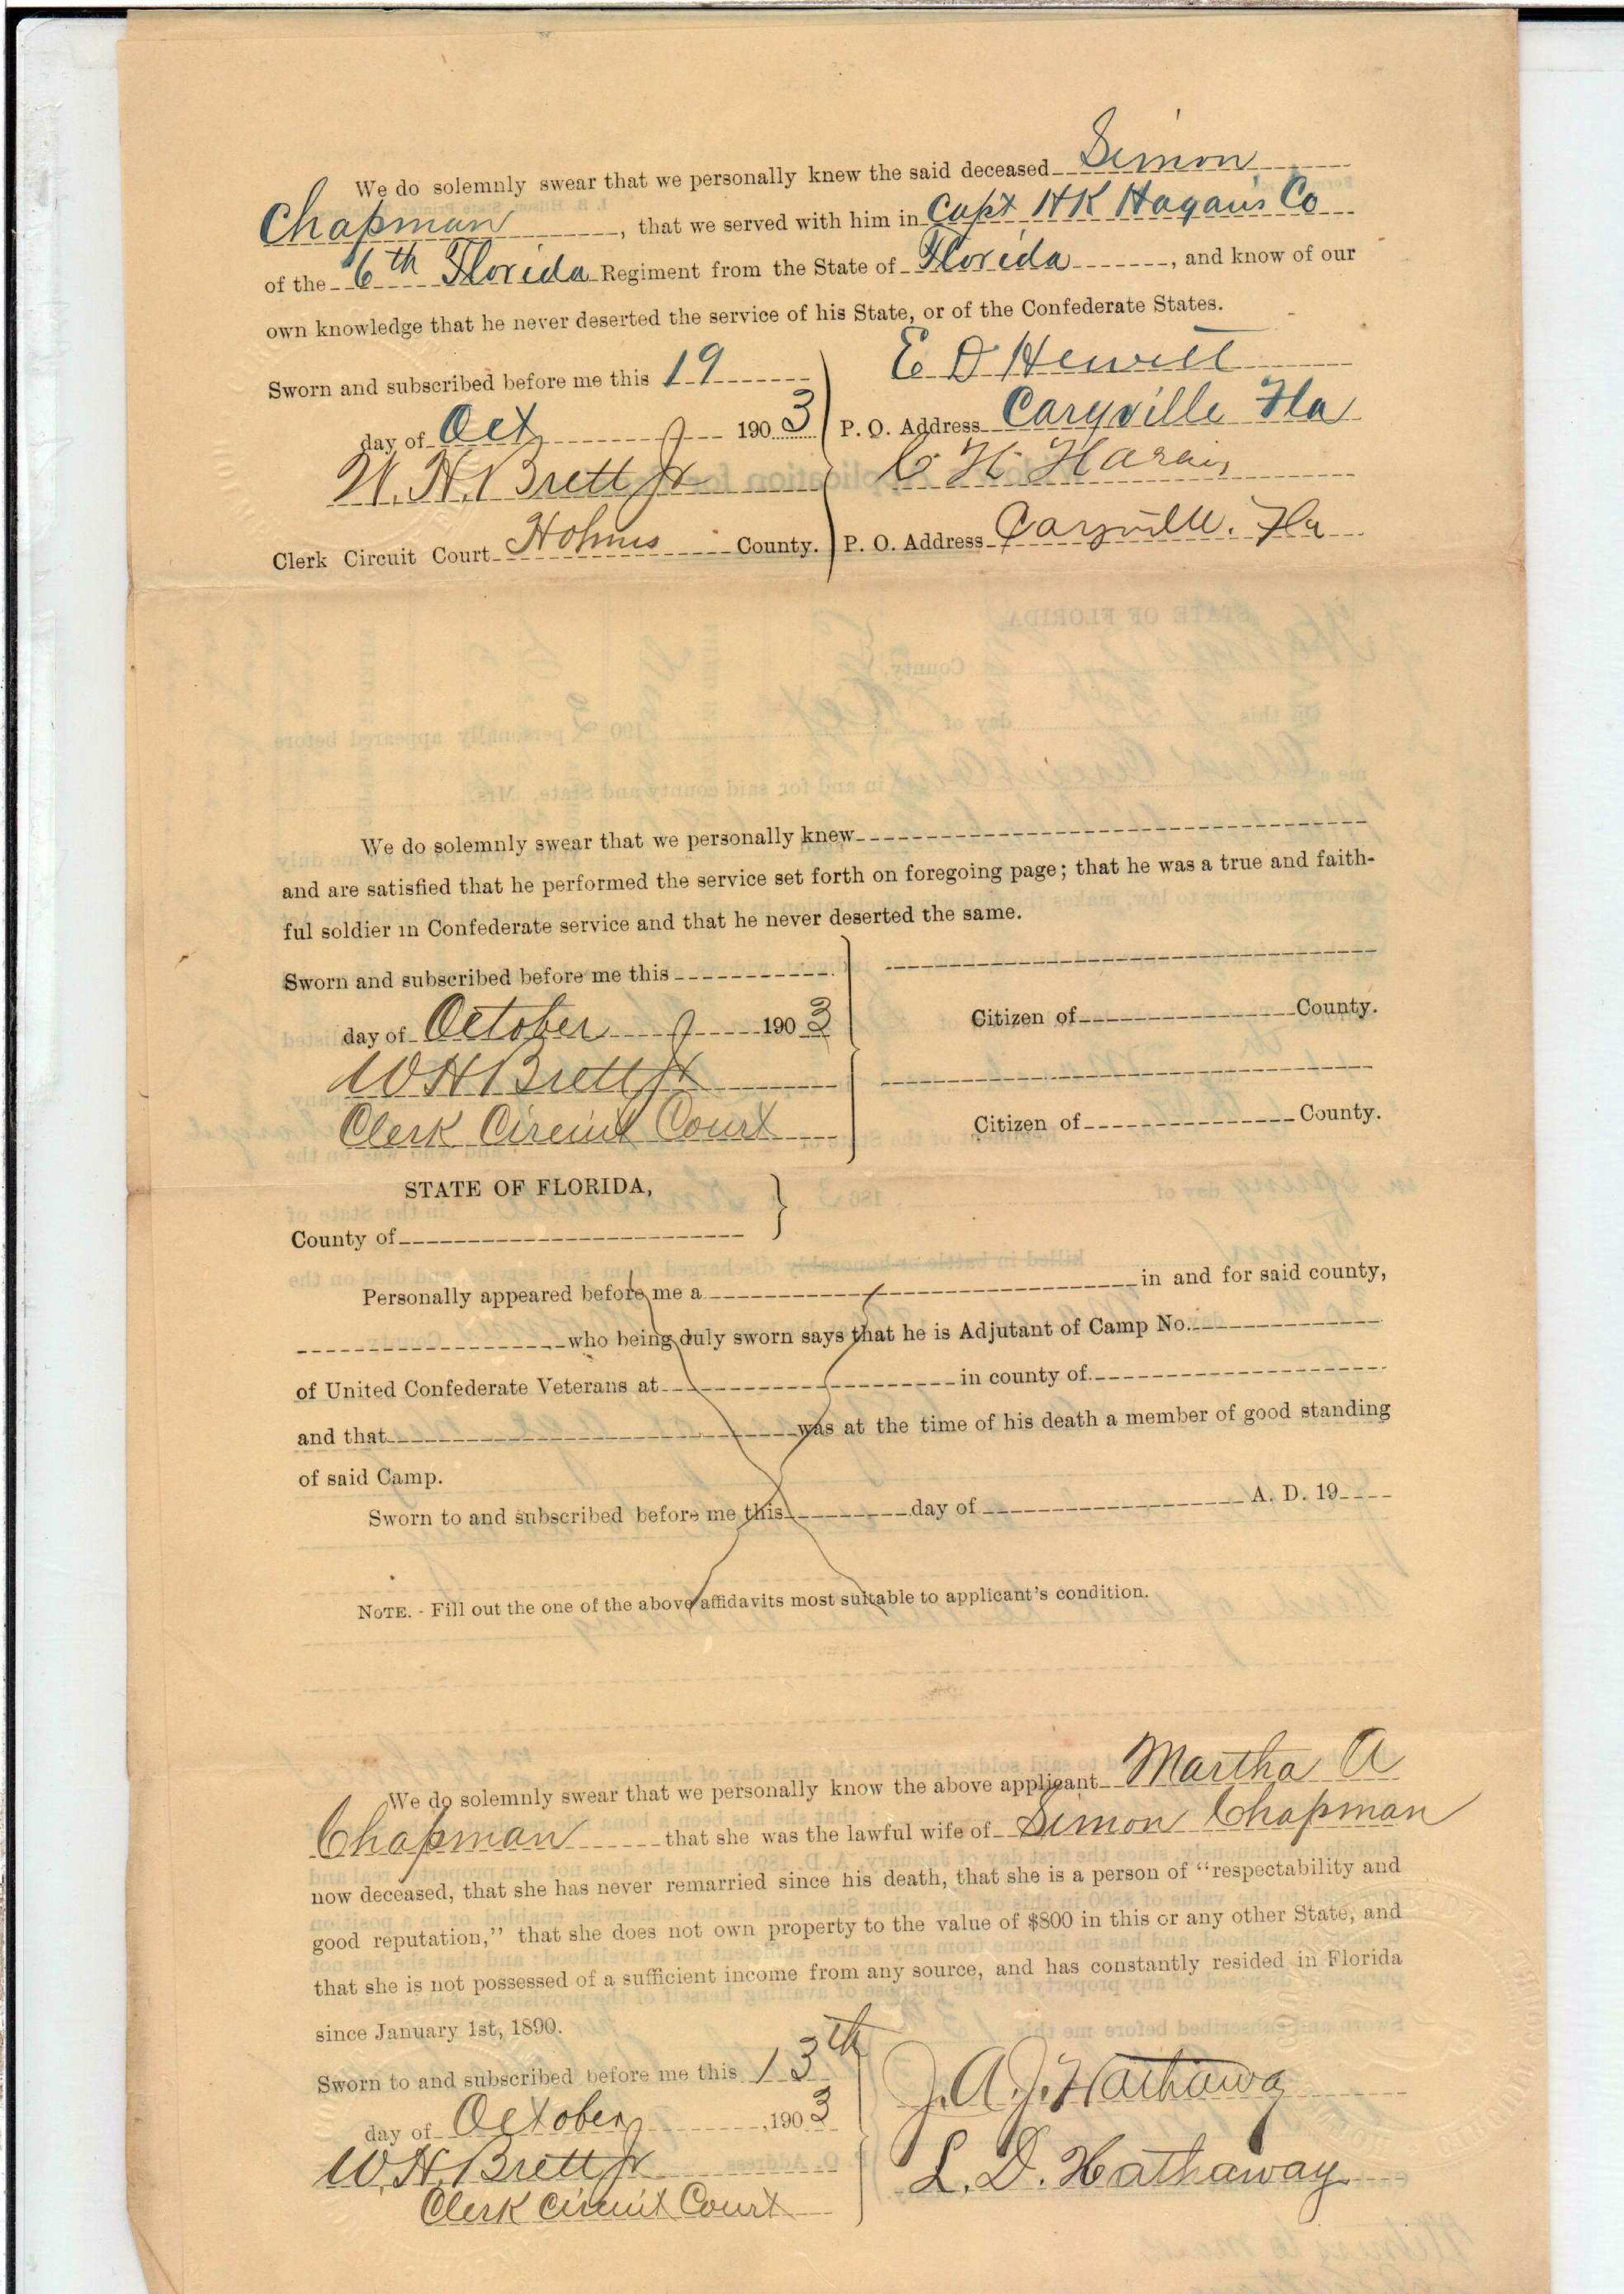 We do solemnly swear that we personally knew the said deceased Simon
Chapman, that we served with him in Capt HK Hagans Co
of the 6th Florida Regiment from the State of Florida, and know of our
own knowledge that he never deserted the service of his State, or of the Confederate States.
Sworn and subscribed before me this 19
day of Oct 1903
W. H. Brett Jr
Clerk Circuit Court Holmes County.
E D Hewett
P. O. Address Caryville Fla
C. H.
P. O. Address Caryville. Fla
We do solemnly swear that we personally knew
and are satisfied that he performed the service set forth on foregoing page; that he was a true and faith-
ful soldier in Confederate service and that he never deserted the same.
Sworn and subscribed before me this
day of October 1903
W H Brett Jr
Clerk Circuit Court
Citizen of County.
Citizen of County.
STATE OF FLORIDA,
County of
Personally appeared before me a in and for said county,
who being duly sworn says that he is Adjutant of Camp No.
of United Confederate Veterans at in county of
and that was at the time of his death a member of good standing
of said Camp.
Sworn to and subscribed before me this day of A. D. 19
NOTE. - Fill out the one of the above affidavits most suitable to applicant's condition.
We do solemnly swear that we personally know the above applicant Martha A
Chapman that she was the lawful wife of Simon Chapman
now deceased, that she has never remarried since his death, that she is a person of "respectability and
good reputation," that she does not own property to the value of $800 in this or any other State, and
that she is not possessed of a sufficient income from any source, and has constantly resided in Florida
since January 1st, 1890.
Sworn to and subscribed before me this 13th
day of October, 1903
W. H. Brett Jr
Clerk Circuit Court
J. A. J. Hathaway
L. D. Hathaway